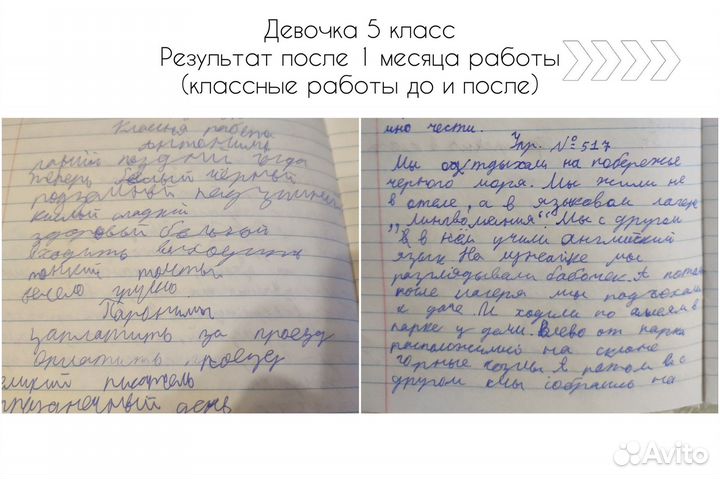 Девочка 5 класс
Результат после 1 месяца работы
(классные работы до и после)
Классная работа
Антонимы
ранний поздний тогда
теперь белый чёрный
кислый сладкий
здоровый больной
входить выходить
тонкий толстый
весело грустно
Паронимы
заплатить за проезд
оплатить проезд
великий писатель
праздничный день
ино чести.
Упр. №517
Мы отдыхали на побережье
чёрного моря. Мы жили не
в отеле, а в языковом лагере
„Лингвомания“. Мы с другом
в нём учили английский
язык На лужайке мы
разглядывали бабочек. А потом
после лагеря мы подъехали
к даче. И ходили по аллеям в
парке у дачи. Влево от парка
расположились на склоне
горные козлы А потом я с
другом мы собрались на
Avito